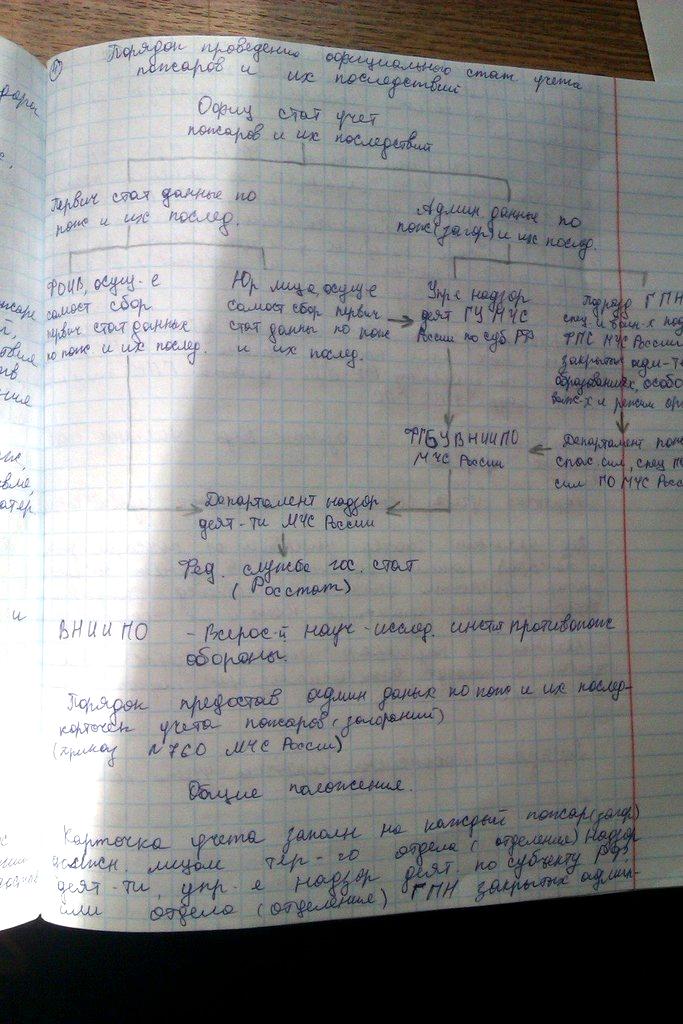 Порядок проведения официального стат учета
пожаров и их последствий
Офиц стат учет
пожаров и их последствий
Первич стат данные по
пож и их послед.
Админ данные по
пож(загор) и их послед.
ФОИВ, осущ-е
самост сбор
первич стат данных
по пож и их послед.
Юр лица, осущ-е
самост сбор первич
стат данны по пож
и их послед.
Упр-е надзор
деят ГУ МЧС
России по суб РФ
Подразд ГПН
спец и воин-х под
ФПС МЧС России
закрытых адм-те
образованиях, особо
важ-х и режим орг
ФГБУ ВНИИПО
МЧС России
Департамент пож
спас. сил, спец ПО
сил ПО МЧС Росс
Департамент надзор
деят-ти МЧС России
Фед. служба гос. стат
(Росстат)
ВНИИПО - Всерос-й науч-исслед. инст-т противопож
обороны.
Порядок предостав админ даных по пож и их послед-
карточек учета пожаров (загораний)
(приказ N 760 МЧС России)
Общие положения.
Карточка учета заполн на каждый пожар(загор)
должн. лицом тер-го отдела (отделение) надзор
деят-ти, упр-е надзор деят. по субъекту РФ.
или отдела (отделение) ГПН закрытых админ-